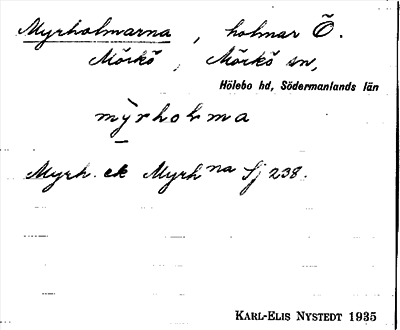 Myrholmarna, holmar Ö.
Mörkö, Mörkö sn,
Hölebo hd, Södermanlands län
mỳrholma
Myrh. ek Myrh na Sj 238.
KARL-ELIS NYSTEDT 1935